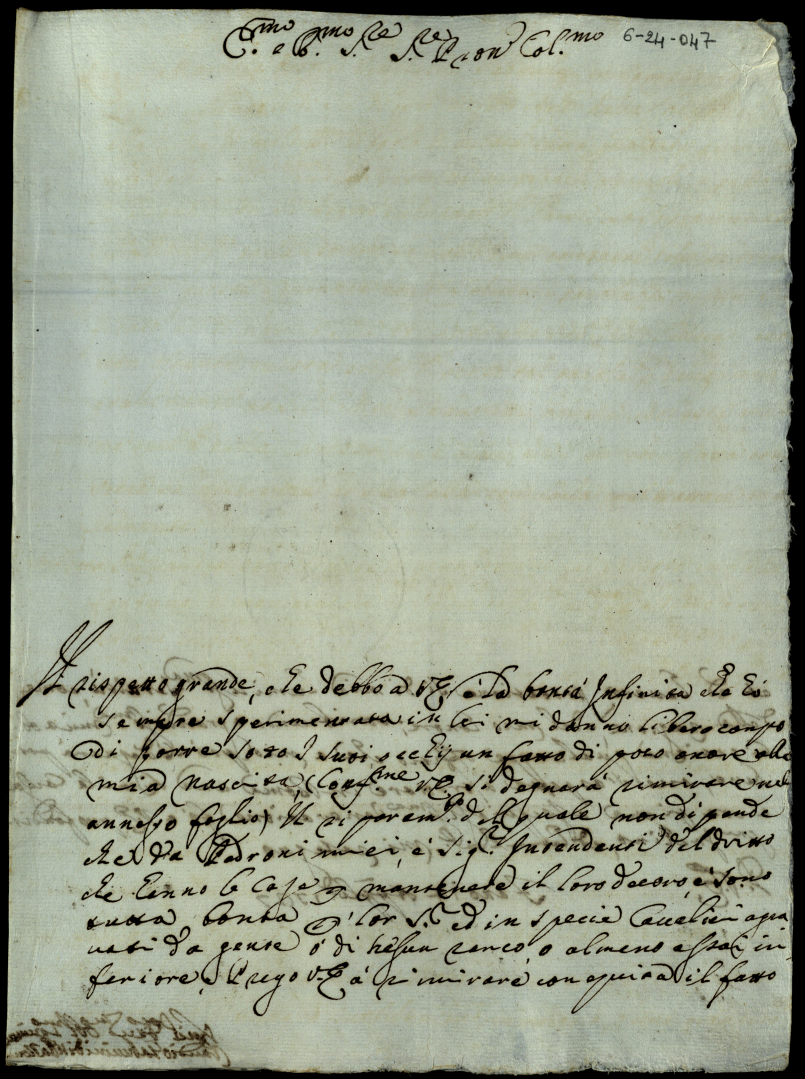 E.mo P.mo S.re S.re Pron Col.mo 6-24-047
Il rispetto grande, che debbo a V.E. è la bontà Infinita che hò
sempre sperimentata in Lei mi danno libero campo
Di porre sotto I suoi occhij un fatto di poco onore alla
mia nascita, (Conf.me V.E. si degnarà rimirare nel
annesso foglio) Il riparam.to del quale non dipende
che da Padroni miei, è Sig.ri Intendenti del dritto
che hanno le Case p mantenere il loro decoro, è sono
tutta bontà p lor S.ri ed in specie Cavalieri agra
vati da gente ò di nesun rango, o almeno assai in
feriore, Prego V.E. à rimirare con equità il fatto